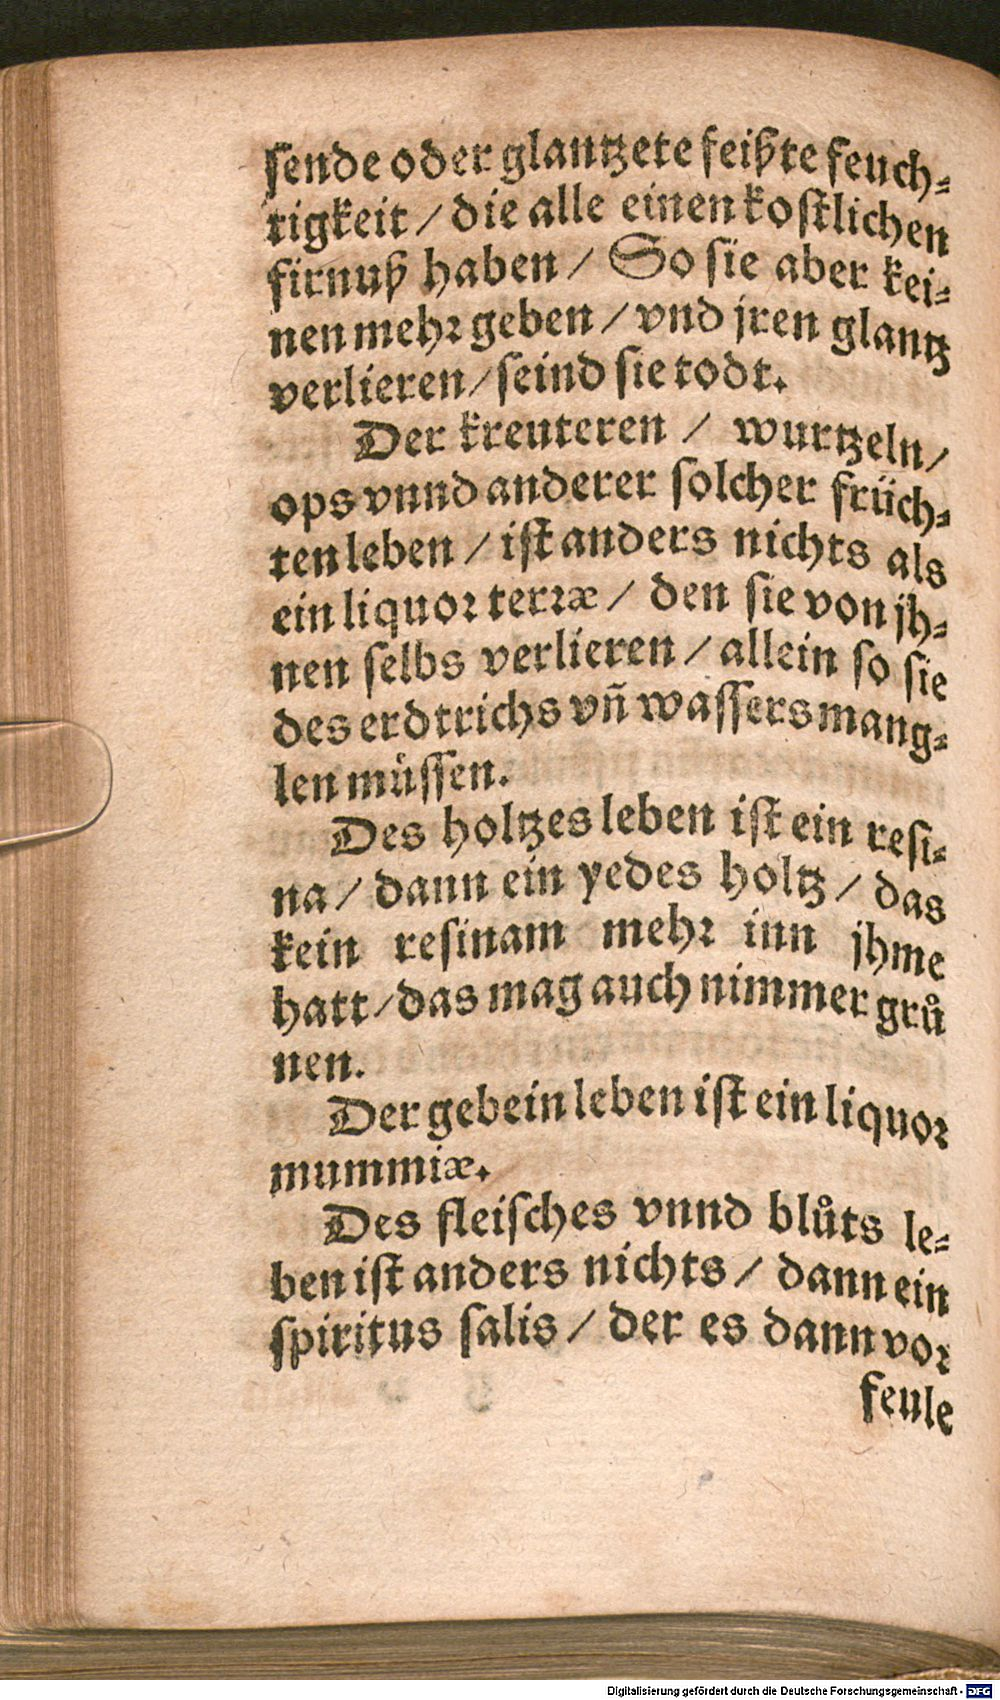 sende oder glantzete feißte feuch-
tigkeit / die alle einen kostlichen
firnuß haben / So sie aber kei-
nen mehr geben / vnd jren glantz
verlieren / seind sie todt.
Der kreuteren / wurtzeln /
ops vnnd anderer solcher früch-
ten leben / ist anders nichts als
ein liquor terræ / den sie von jh-
nen selbs verlieren / allein so sie
des erdtrichs vñ wassers mang-
len müssen.
Des holtzes leben ist ein resi-
na / dann ein yedes holtz / das
kein resinam mehr inn jhme
hatt / das mag auch nimmer grů
nen.
Der gebein leben ist ein liquor
mummiæ.
Des fleisches vnnd blůts le-
ben ist anders nichts / dann ein
spiritus salis / der es dann vor
feule
Digitalisierung gefördert durch die Deutsche Forschungsgemeinschaft - DFG